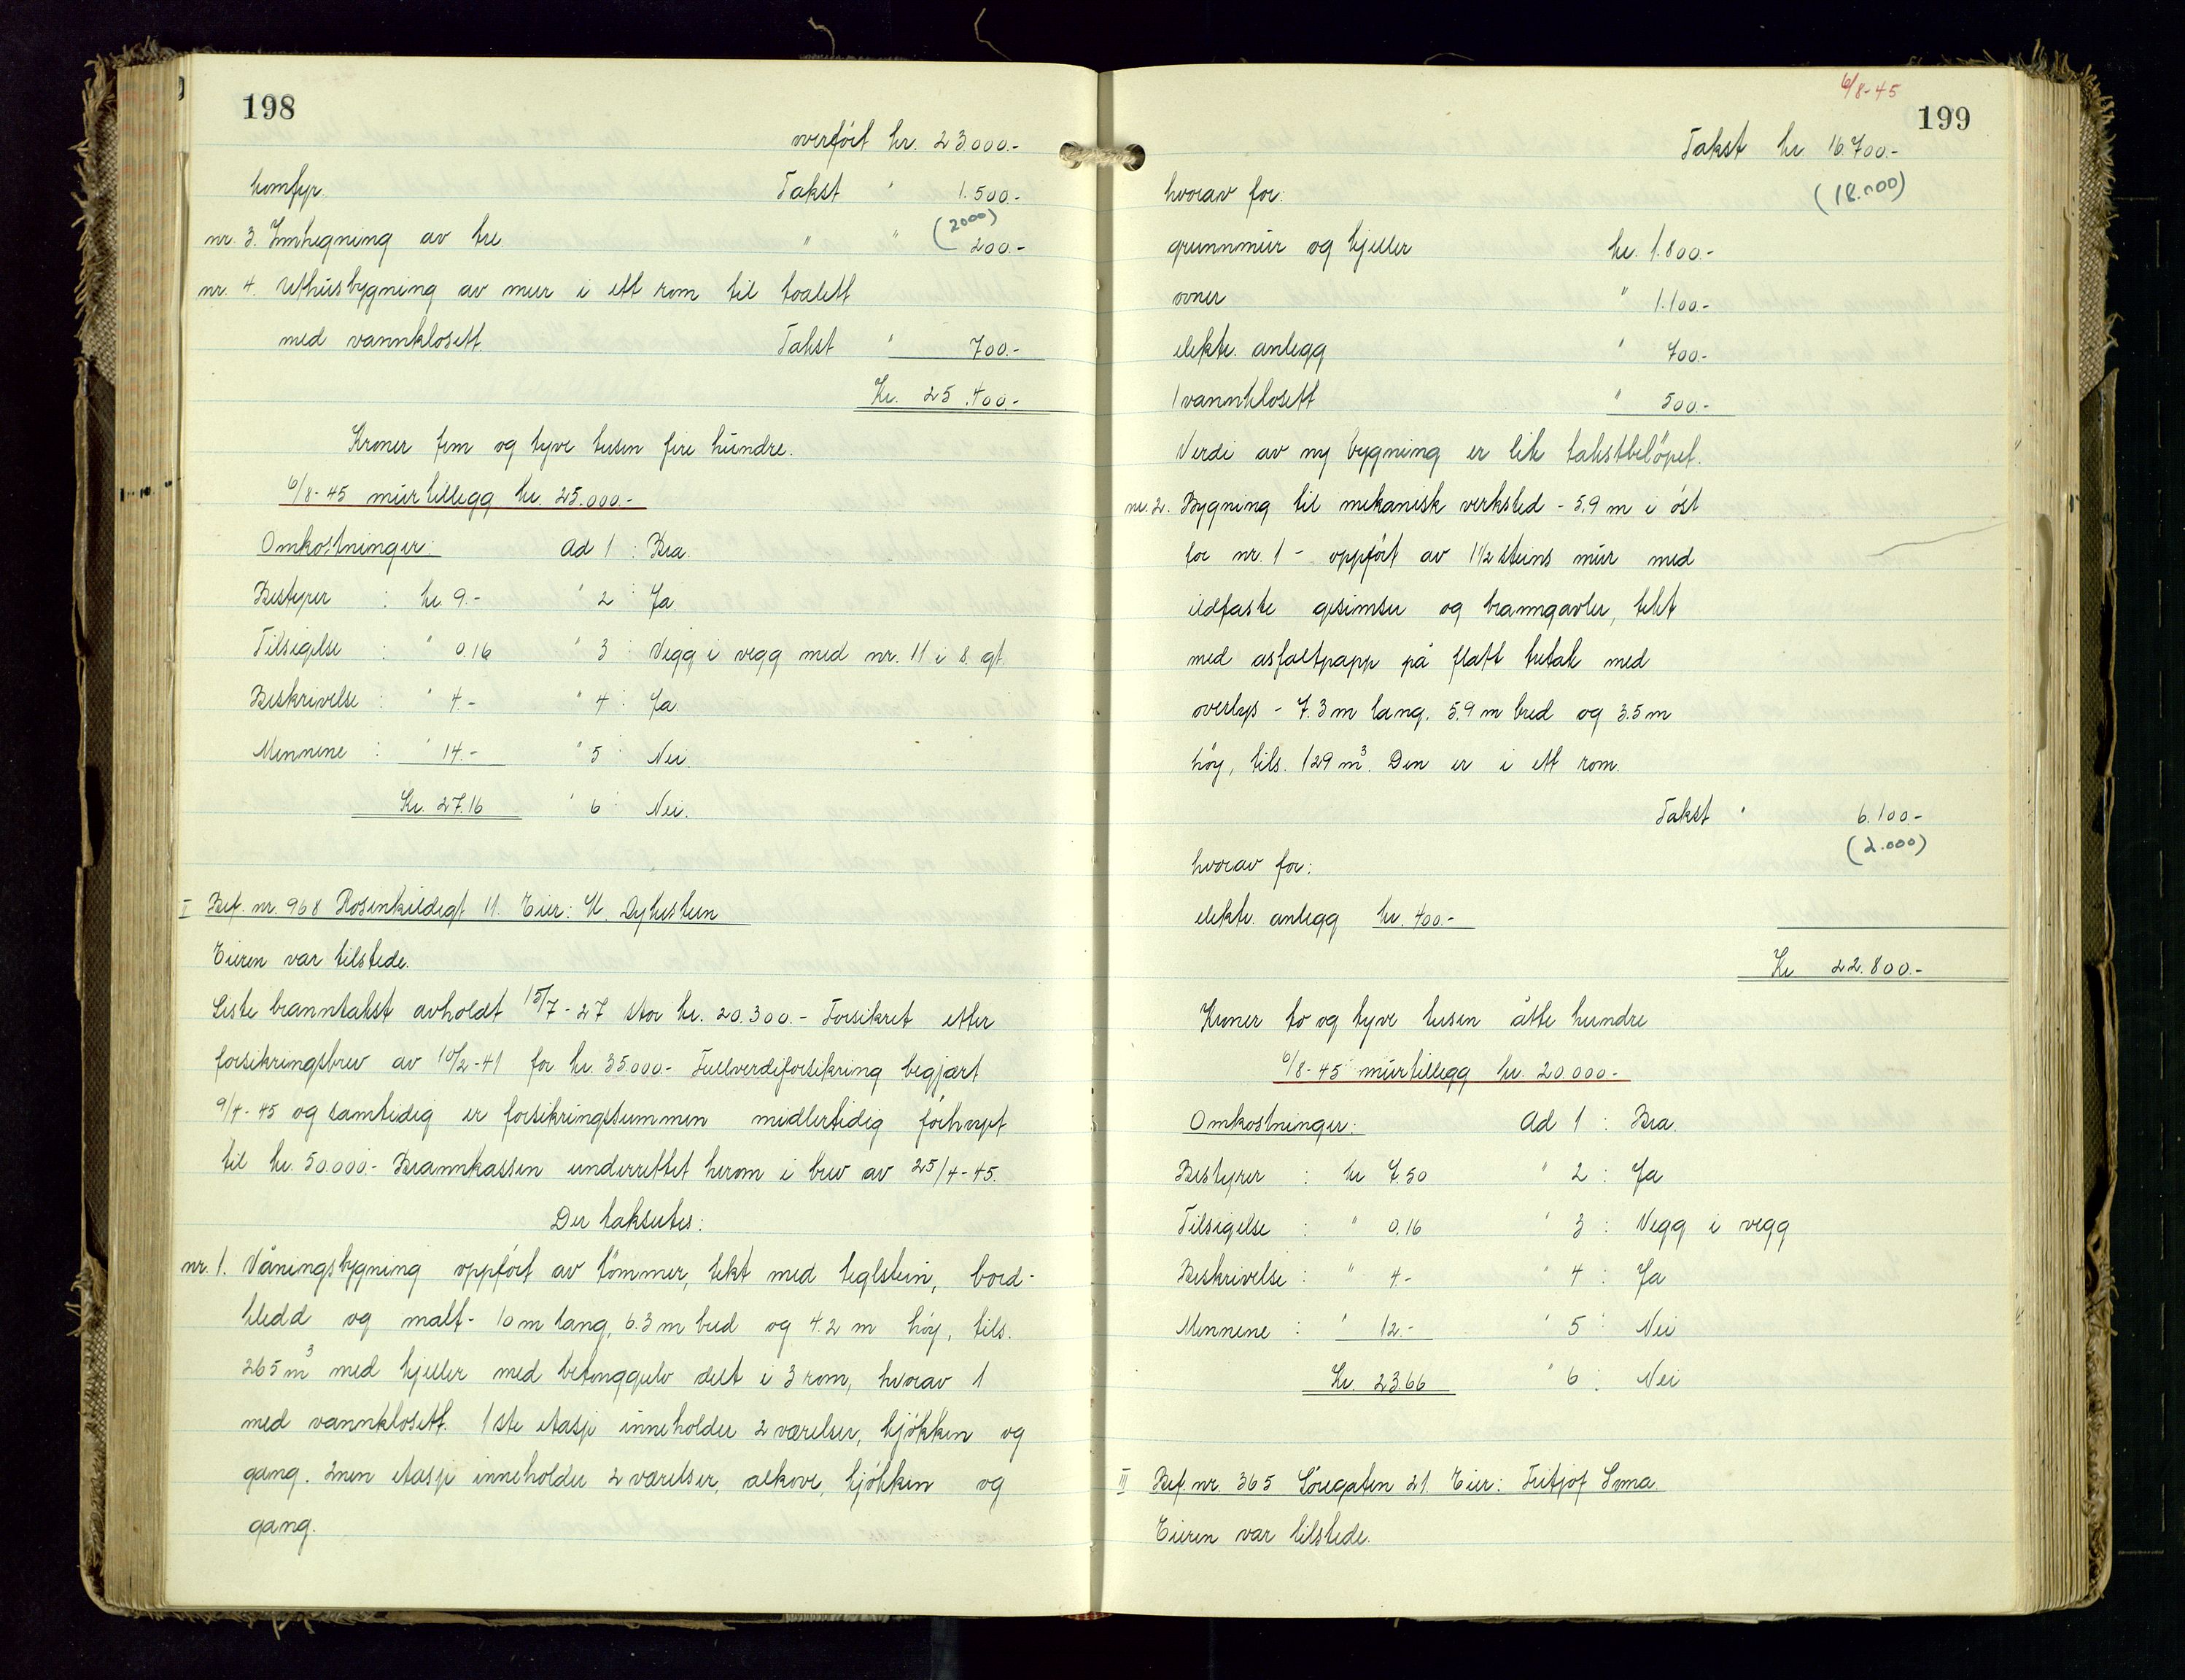 198
overført kr. 23000.-
komfyr. Takst " 1.500.-
(2000)
nr. 3. Innhegning av tre " " 200.-
nr. 4. Uthusbygning av mur i ett rom til toalett
med vannklosett. Takst " 700.-
Kr. 25.400.-
Kroner fem og tyve tusen fire hundre.
6/8-45 murtillegg kr. 25.000.-
Omkostninger: Ad 1 : Bra.
Bestyrer : kr. 9.- " 2 : Ja.
Tilsigelse : " 0.16 " 3 : Vegg i vegg med nr. 11 i s. gt.
Beskrivelse : " 4.- " 4 : Ja.
Mennene : " 14.- " 5 : Nei.
Kr. 27.16 " 6 : Nei.
II Bef. nr. 968 Rosenkildegt 11. Eier: U. Dykesteen
Eieren var tilstede.
Siste branntakst avholdt 15/7-27 stor kr. 20.300.- Forsikret etter
forsikringsbrev av 10/2-41 for kr. 35.000.- Fullverdiforsikring begjært
9/4-45 og samtidig er forsikringssummen midlertidig forhøyet
til kr. 50.000.- Brannkassen underrettet herom i brev av 25/4-45.
Der takseres:
nr. 1. Våningsbygning oppført av tømmer, tekt med teglstein, bord-
kledd og malt - 10 m lang, 6.3 m bred og 4.2 m høy, tils.
265 m³ med kjeller med betonggulv delt i 3 rom, hvorav 1
med vannklosett. 1ste etasje inneholder 2 værelser, kjøkken og
gang. 2nen etasje inneholder 2 værelser, alkove, kjøkken og
gang.
6/8-45
199
Takst kr 16.700.-
(18.000)
hvorav for:
grunnmur og kjeller kr. 1.800.-
ovner " 1.100.-
elektr. anlegg " 700.-
1 vannklosett " 500.-
Verdi av ny bygning er lik takstbeløpet.
nr. 2. Bygning til mekanisk verksted - 5,9 m i øst
for nr. 1 - oppført av 1 1/2 steins mur med
ildfaste gesimser og branngavler, tekt
med asfaltpapp på flatt tretak med
overlys - 7.3 m lang, 5,9 m bred og 3.5 m
høy, tils. 129 m³. Den er i ett rom.
Takst " 6.100.-
(2.000)
hvorav for:
elektr. anlegg kr. 400.-
Kr 22.800.-
Kroner to og tyve tusen åtte hundre
6/8-45 murtillegg kr. 20.000.-
Omkostninger: Ad 1 : Bra.
Bestyrer : kr 7.50 " 2 : Ja
Tilsigelse : " 0.16 " 3 : Vegg i vegg
Beskrivelse : " 4.- " 4 : Ja
Mennene : " 12.- " 5 : Nei
Kr. 23.66 " 6 : Nei
III Bef. nr. 365 Søregaten 21. Eier: Fritjof Sma.
Eieren var tilstede.